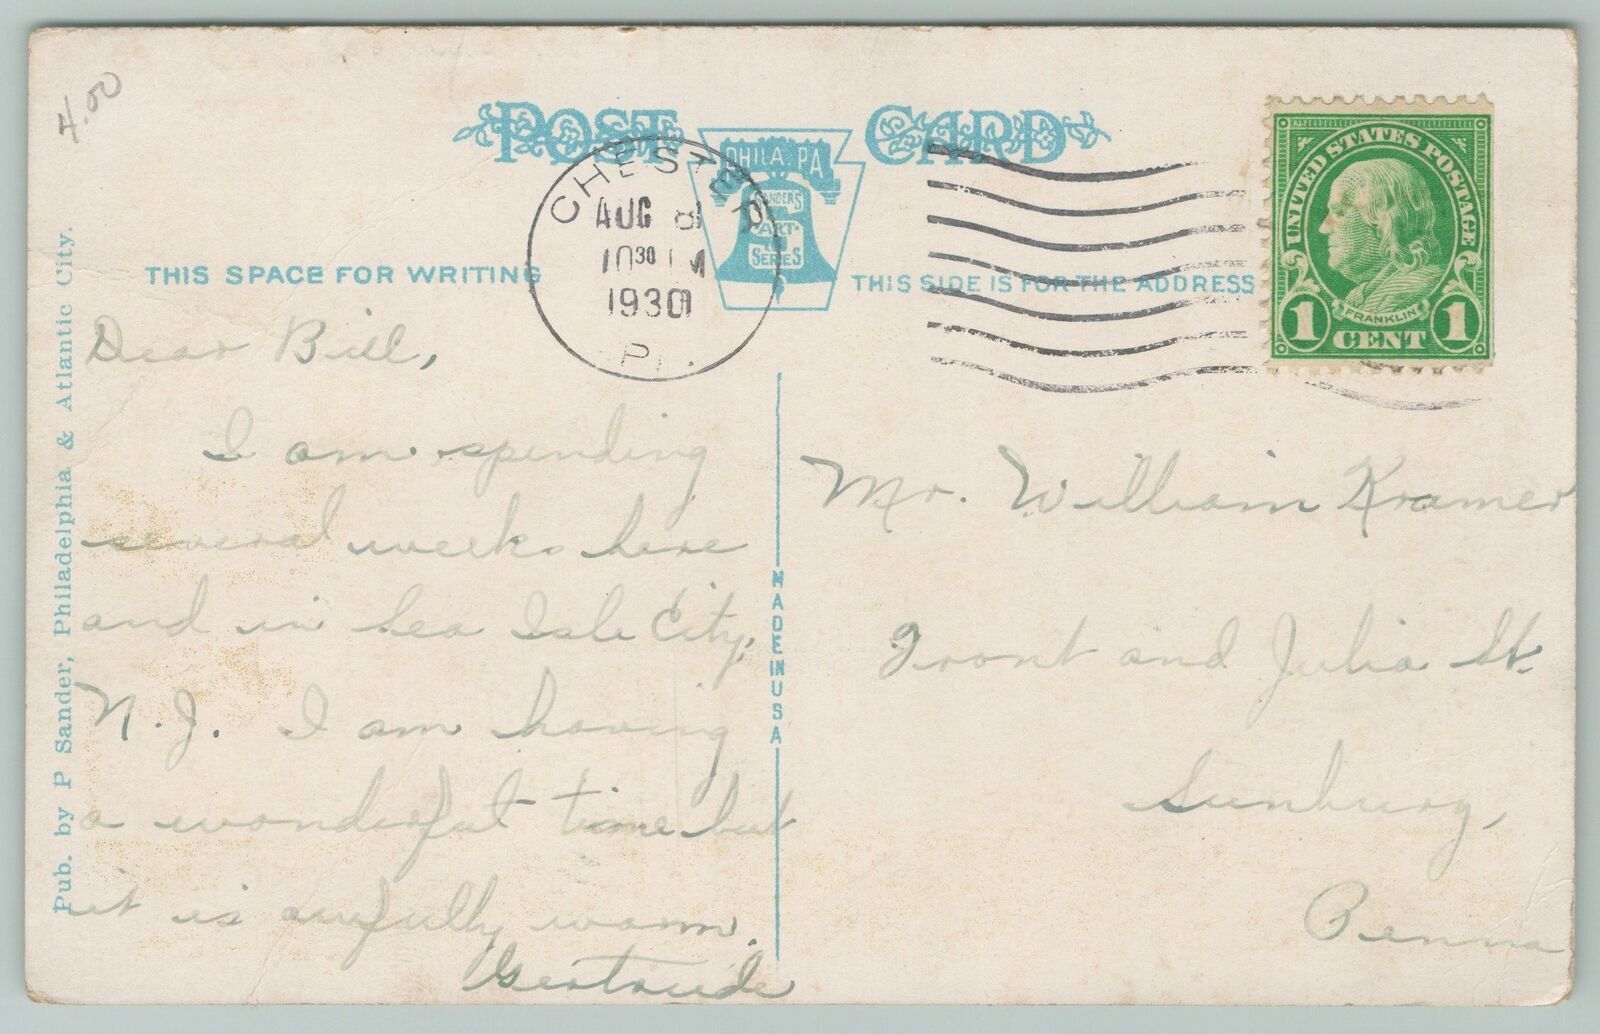 4.00
POST CARD
PHILA. PA
SANDERS
ART
SERIES
CHESTER
AUG 8
10 30 M
1930
PA.
UNITED STATES POSTAGE
FRANKLIN
1 CENT 1
THIS SPACE FOR WRITING
THIS SIDE IS FOR THE ADDRESS
Pub. by P Sander, Philadelphia & Atlantic City.
MADE IN USA
Dear Bill,
I am spending
several weeks here
and in Sea Isle City,
N.J. I am having
a wonderful time but
it is awfully warm.
Gertrude
Mr. William Kramer
Front and Julia St.
Sunbury,
Penna